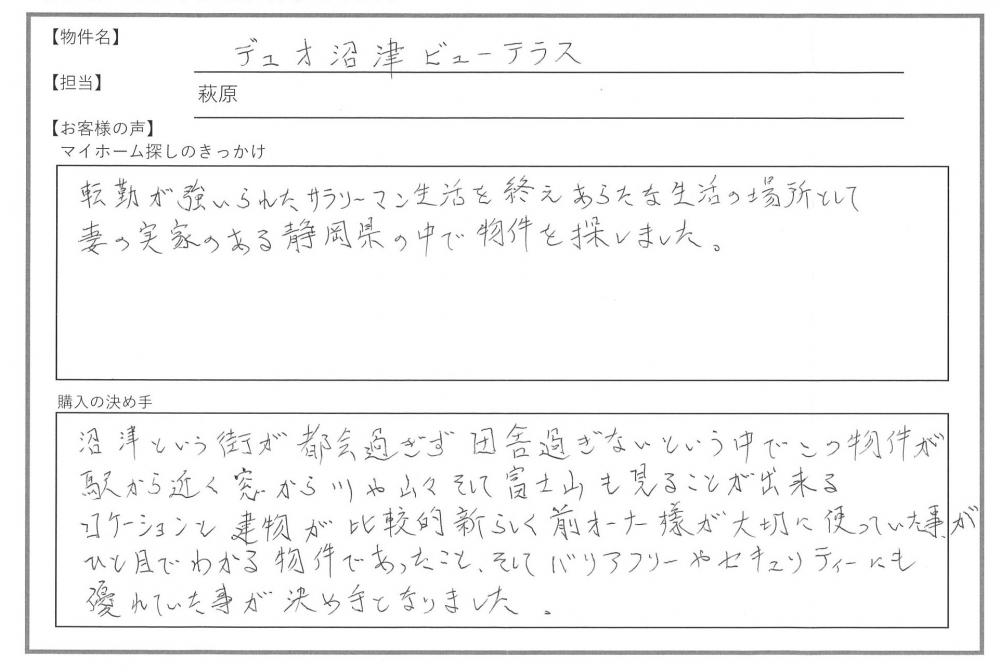 【物件名】
デュオ沼津ビューテラス
【担当】
萩原
【お客様の声】
マイホーム探しのきっかけ
転勤が強いられたサラリーマン生活を終えあらたな生活の場所として
妻の実家のある静岡県の中で物件を探しました。
購入の決め手
沼津という街が都会過ぎず田舎過ぎないという中でこの物件が
駅から近く窓から川や山々そして富士山も見ることが出来る
ロケーションと建物が比較的新らしく前オーナー様が大切に使っていた事が
ひと目でわかる物件であったこと、そしてバリアフリーやセキュリティーにも
優れていた事が決め手となりました。